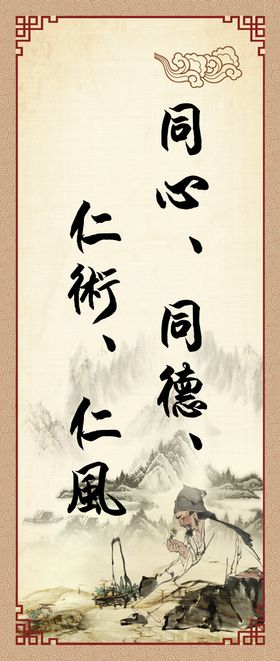 同心、同德、
仁術、仁風